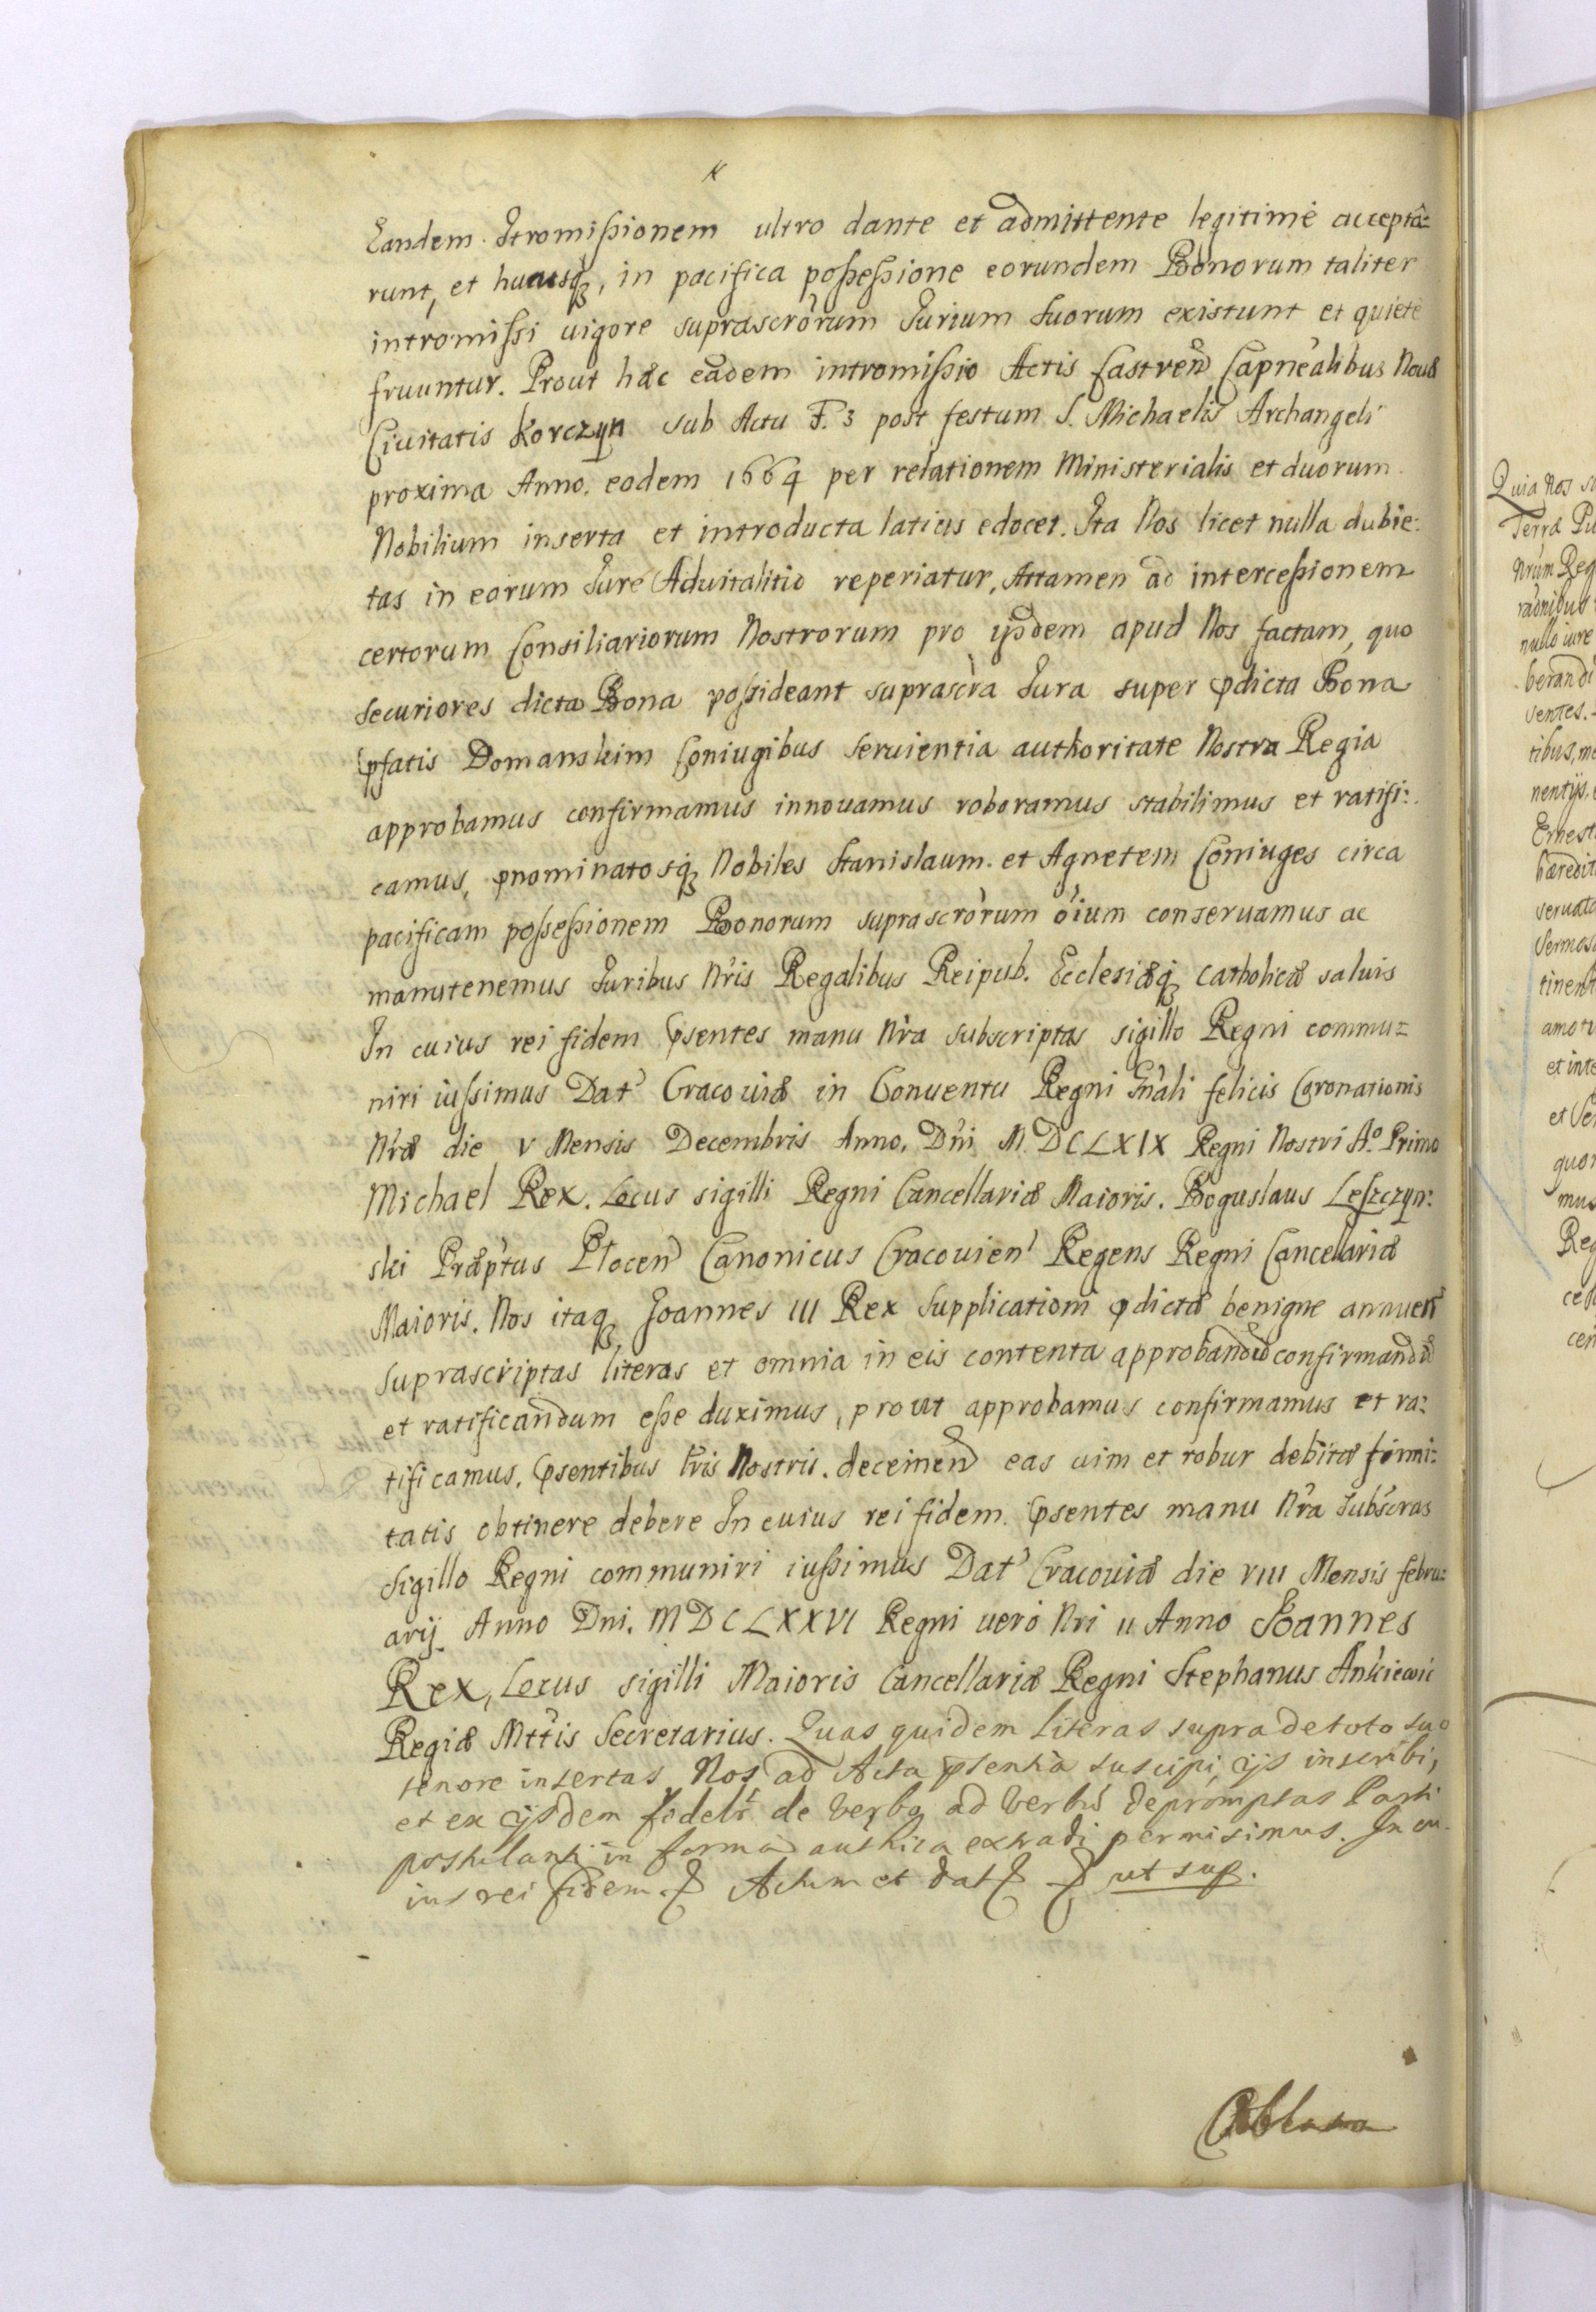 Eandem Itromißionem ultro dante et admittente legitimè acceptâ=
runt, et hucusq3, in pacifica poßeßione eorundem Bonorum taliter
intromißi uigore suprascrõrum Iurium Suorum existunt et quietè
fruuntur. Prout hæc eadem intromißio Actis Castren̄ Capnealibus Nouæ
Ciuitatis Korczyn sub Actu F. 3 post festum S. Michaelis Archangeli
proxima Anno. eodem 1664 per relationem Ministerialis et duorum
Nobilium inserta et introducta latius edocet. Ita Nos licet nulla dubie:
tas in eorum Iure Aduitalitio reperiatur, Attamen ad interceßionem
certorum Consiliariorum Nostrorum pro ijsdem apud Nos factam, quo
securiores dicta Bona poßideant suprascr̀a Iura super p̄dicta Bona
p̄fatis Domanskim Coniugibus seruientia authoritate Nostra Regia
approbamus confirmamus innouamus roboramus stabilimus et ratifi:
camus, p̄nominatosq3 Nobiles Stanislaum. et Agnetem Coniuges circa
pacificam poßeßionem Bonorum suprascrõrum õium conseruamus ac
manutenemus Iuribus Nr̃is Regalibus Reipub. Ecclesiæq3 Catholicæ saluis
In cuius rei fidem p̄sentes manu Nr̃a subscriptas sigillo Regni commu=
niri iußimus Dat' Cracouiæ in Conuentu Regni Gñali felicis Coronationis
Nr̃æ die V Mensis Decembris Anno. Dn̄i M. DCLXIX Regni Nostri Aº. Primo
Michael Rex. Locus sigilli Regni Cancellariæ Maioris. Boguslaus Leszczyn:
ski Præp̃tus Plocen̄ Canonicus Cracouien' Regens Regni Cancellariæ
Maioris. Nos itaq3 Joannes III Rex supplicationi p̄dictæ benigne annuen̄
suprascriptas literas et omnia in eis contenta approbandū confirmandū
et ratificandum eße duximus, prout approbamus confirmamus et ra=
tificamus. p̄sentibus Lr̃is Nostris. decernen̄ eas uim et robur debitæ firmi:
tatis obtinere debere In cuius rei fidem. p̄sentes manu Nr̃a Subscr̃as
sigillo Regni communiri iußimus Dat' Cracouiæ die VIII Mensis febru=
arij Anno Dn̄i. MDCLXXVI Regni uerò Nr̃i II Anno Joannes
Rex, Locus sigilli Maioris Cancellariæ Regni Stephanus Ankiewic
Regiæ Mt̃tis Secretarius. Quas quidem literas supra de toto suo
tenore insertas Nos ad Acta p̄sentia suscipi, ijs inscribi,
et ex ijsdem fidelr̃ de verbo ad verbū depromptas Parti
postulanti in forma authca extradi permisimus. In cu-
ius rei fidem. Actum et dat ut sup.
Oblata
Quia Nos
Terræ
Nrũm Reg
nullo iure
berandi
uentes.
tibus, me
nentijs,
Ernest
hæredit
seruat
tinent
amo
et inte
et
quor
mus
Reg